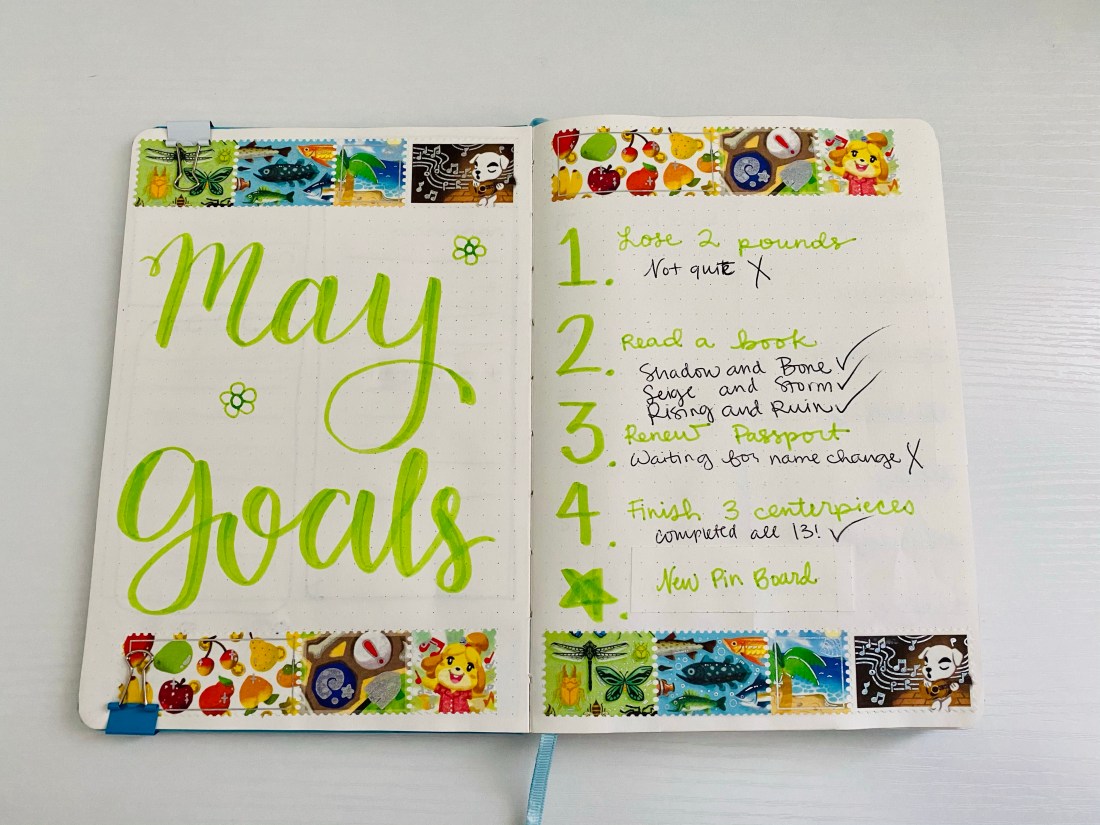 May
Goals
1. Lose 2 pounds
Not quite X
2. Read a book
Shadow and Bone ✓
Seige and Storm ✓
Rising and Ruin ✓
3. Renew Passport
Waiting for name change X
4. Finish 3 centerpieces
completed all 13! ✓
★. New Pin Board